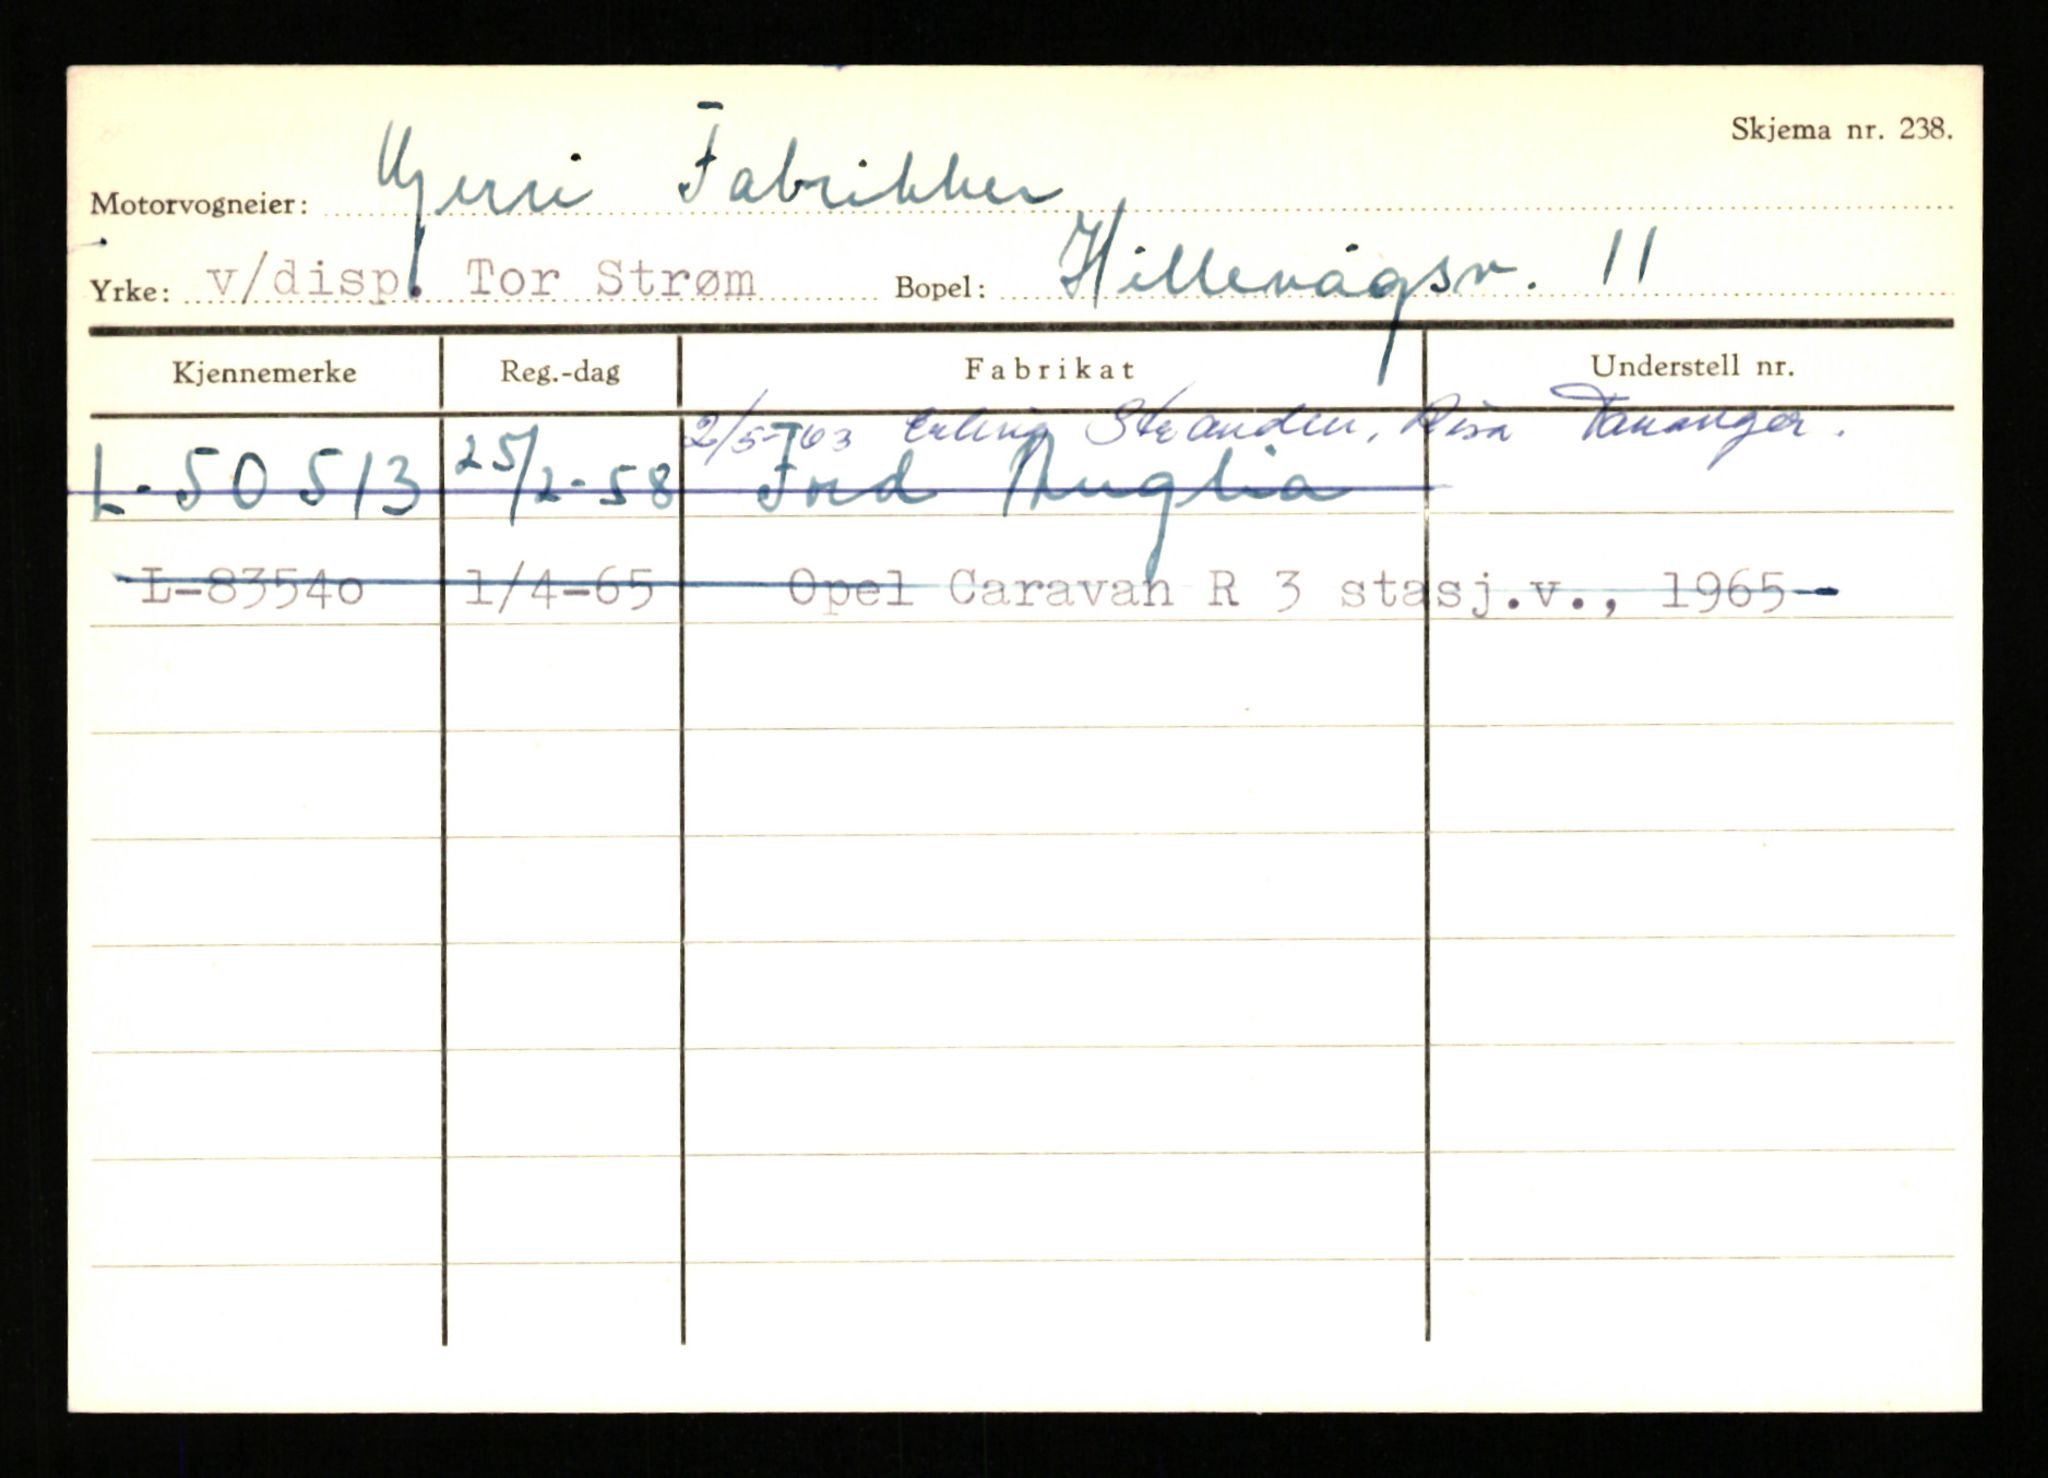 Skjema nr. 238.
Motorvogneier: Kjerri Fabrikker
Yrke: v/disp. Tor Strøm Bopel: Hillevågsv. 11
Kjennemerke Reg.-dag Fabrikat Understell nr.
2/5-63 Erling Stranden, Risa Tananger.
L-50513 25/2-58 Ford Anglia
L-83540 1/4-65 Opel Caravan R 3 stasj.v., 1965